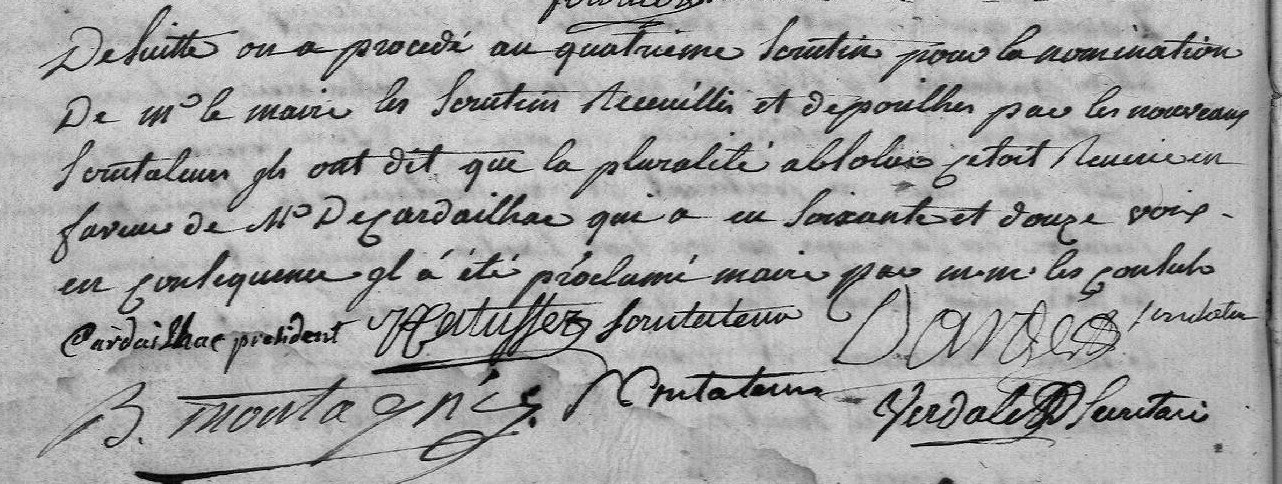 De suitte on a procedé au quatrieme scrutin pour la nomination
De mr le maire les scrutins Receuillis et depouilhes par les nouveaux
scrutateurs jls ont dit que la pluralité absolue çetoit Reunie en
faveur de Mr De Cardailhac qui a eu soixante et douze voix -
en consequence jl á été proclamé maire par m.m. les consuls
Cardailhac president scrutateur Dardes scrutateur
B. montagnés scrutateur Verdale secretaire